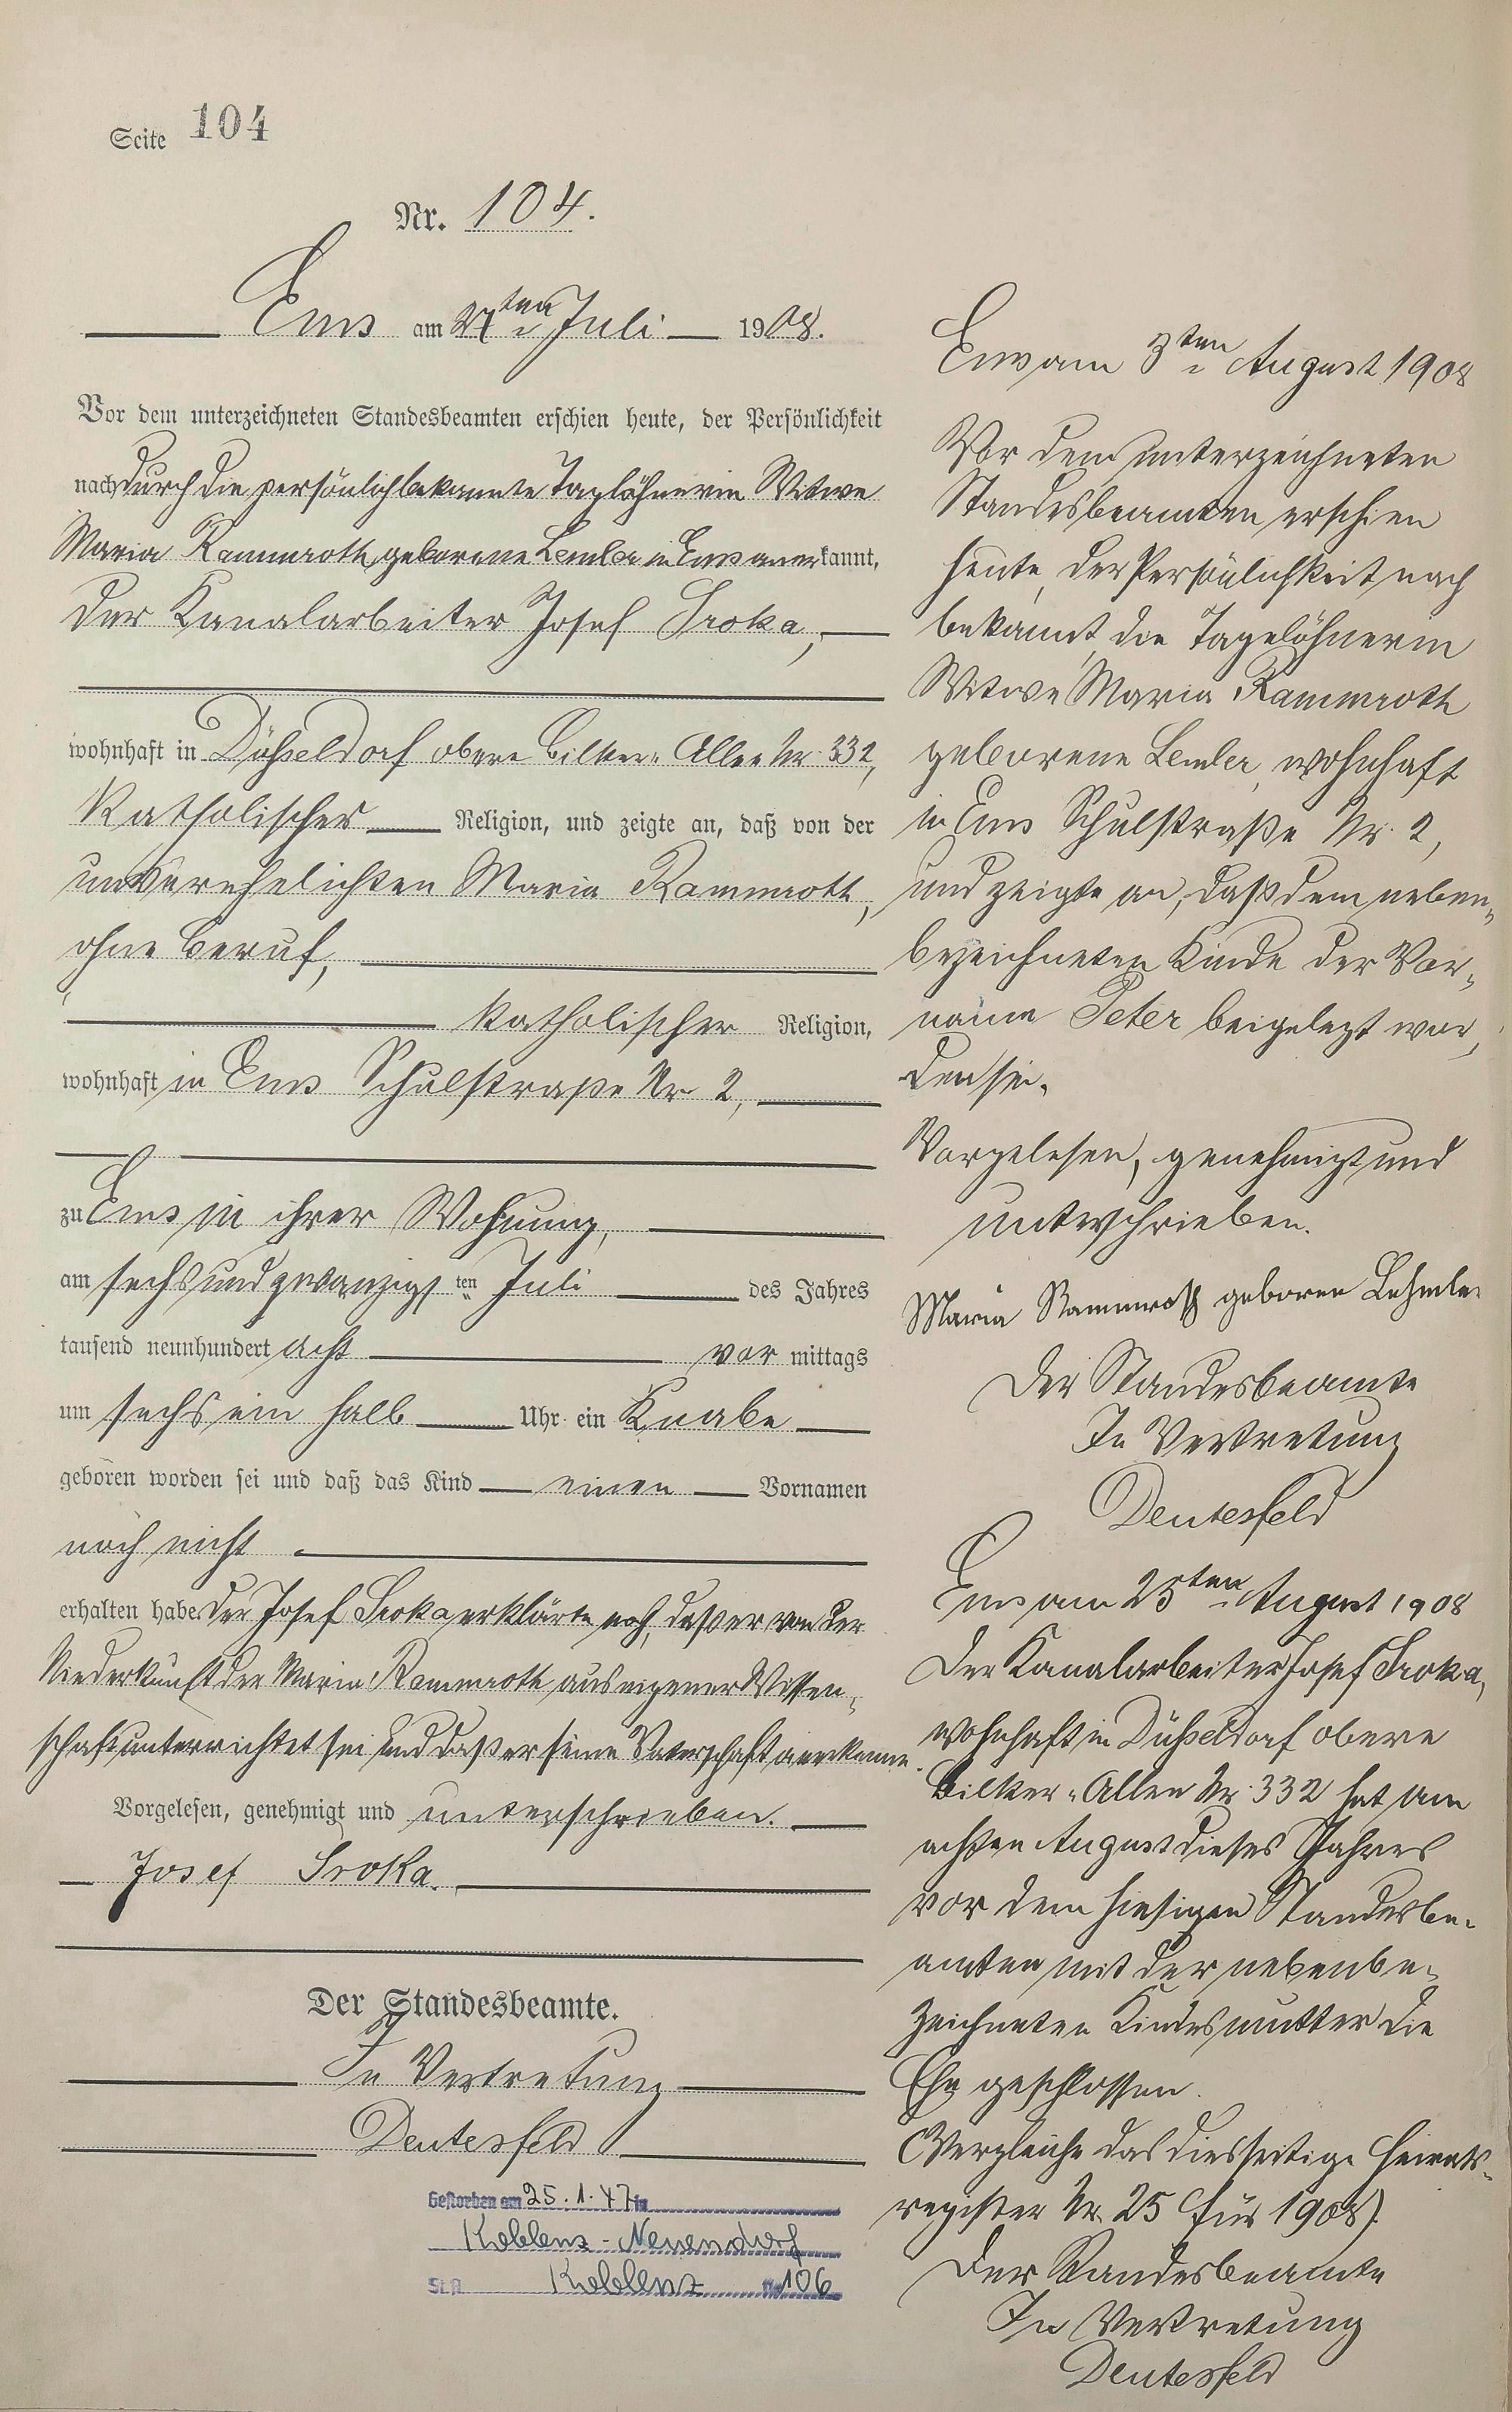 Seite 104
Nr. 104.
Ems am 27ten Juli 1908.
Vor dem unterzeichneten Standesbeamten erschien heute, der Persönlichkeit
nach durch die persönlich bekannte Taglöhnerin Witwe
Maria Rammroth geborene Lemler in Ems anerkannt,
der Kanalarbeiter Josef Sroka,
wohnhaft in Düsseldorf obere Bilker-Allee Nr. 332,
katholischer Religion, und zeigte an, daß von der
unverehelichten Maria Rammroth,
ohne Beruf,
katholischer Religion,
wohnhaft in Ems Schulstraße Nr. 2,
zu Ems in ihrer Wohnung,
am sechsundzwanzigsten Juli des Jahres
tausend neunhundert acht vormittags
um sechs ein halb Uhr ein Knabe
geboren worden sei und daß das Kind einen Vornamen
noch nicht
erhalten habe. Der Josef Sroka erklärte noch, daß er von der
Niederkunft der Maria Rammroth aus eigener Wissen-
schaft unterrichtet sei und daß er seine Vaterschaft anerkenne.
Vorgelesen, genehmigt und unterschrieben.
Josef Sroka.
Der Standesbeamte.
In Vertretung
Deutesfeld
Gestorben am 25.1.47 in
Koblenz-Neuendorf
St.A. Koblenz Nr. 106
Ems am 3ten August 1908
Vor dem unterzeichneten
Standesbeamten erschien
heute, der Persönlichkeit nach
bekannt, die Tagelöhnerin
Witwe Maria Rammroth
geborene Lemler, wohnhaft
in Ems Schulstraße Nr. 2,
und zeigte an, daß dem neben-
bezeichneten Kinde der Vor-
name Peter beigelegt wor-
den sei.
Vorgelesen, genehmigt und
unterschrieben.
Maria Rammroth geborene Lehmler
Der Standesbeamte
In Vertretung
Deutesfeld
Ems am 25ten August 1908
Der Kanalarbeiter Josef Sroka,
wohnhaft in Düsseldorf obere
Bilker-Allee Nr. 332 hat am
achten August dieses Jahres
vor dem hiesigen Standesbe-
amten mit der nebenbe-
zeichneten Kindesmutter die
Ehe geschlossen.
(Vergleiche das diesseitige Heirats-
register Nr. 25 für 1908).
Der Standesbeamte
In Vertretung
Deutesfeld